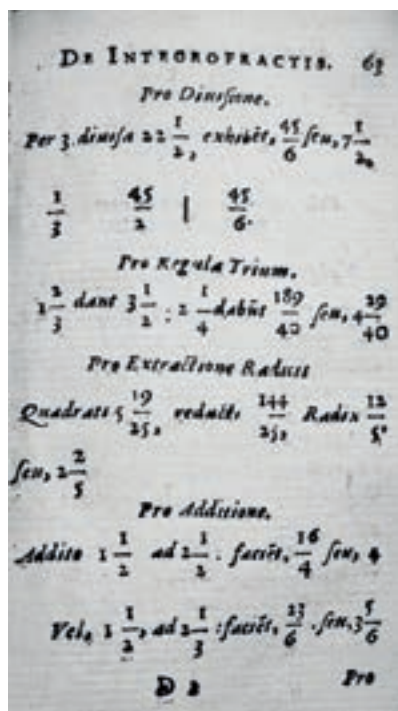 DE INTEGROFRACTIS. 63
Pro Diuiſione.
Per 3. diuiſa 22 1/2, exhibēt, 45/6 ſeu, 7 1/2.
1/3 45/2 | 45/6.
Pro Regula Trium.
1 2/3 dant 3 1/2 : 2 1/4 dabūt 189/40 ſeu, 4 29/40
Pro Extractione Radicis
Quadrati 5 19/25, reducti: 144/25, Radix 12/5.
ſeu, 2 2/5
Pro Additione.
Addito 1 1/2 ad 2 1/2 . faciēt, 16/4 ſeu, 4
Vel, 1 1/2, ad 2 1/3 : faciēt, 23/6 . ſeu, 3 5/6
D 2 Pro